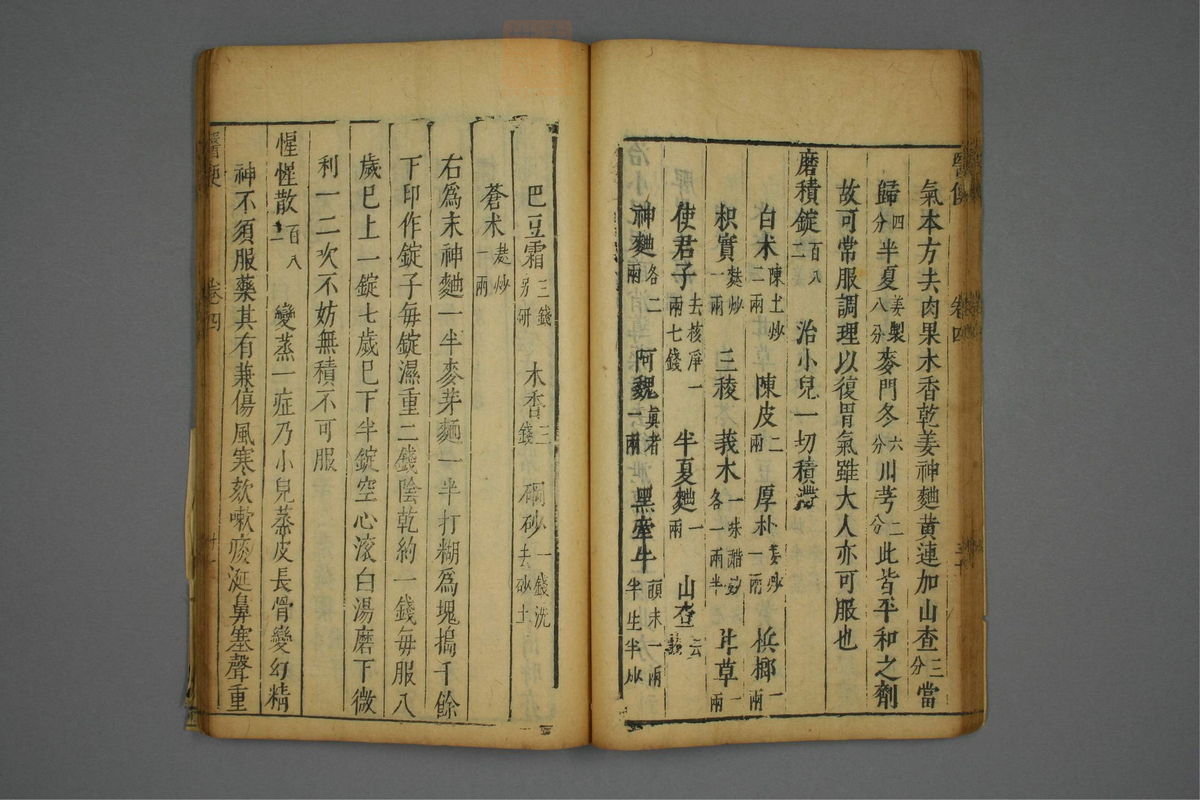 氣本方去肉果木香乾姜神麯黃連加山查三分當
歸四分半夏姜製八分麥門冬六分川芎二分此皆平和之劑
故可常服調理以復胃氣雖大人亦可服也
磨積錠百八二 治小兒一切積滯
白术陳土炒二兩 陳皮二兩 厚朴姜炒一兩 梹榔一兩
枳實麩炒一兩 三稜 莪木一味醋炒各一兩半 甘草一兩
使君子去核淨一兩七錢 半夏麯一兩 山查
神麯各二兩 阿魏真者一兩 黑牽牛頭末一兩半生半炒
巴豆霜三錢另研 木香三錢 硼砂一錢洗去砂土
蒼术麩炒一兩
右爲末神麯一半麥芽麵一半打糊爲塊搗千餘
下印作錠子每錠濕重二錢陰乾約一錢每服八
歲已上一錠七歲已下半錠空心滾白湯磨下微
利一二次不妨無積不可服
惺惺散百八二 變蒸一症乃小兒蒸皮長骨變幻精
神不須服藥其有兼傷風寒欬嗽痰涎鼻塞聲重
醫便 卷四